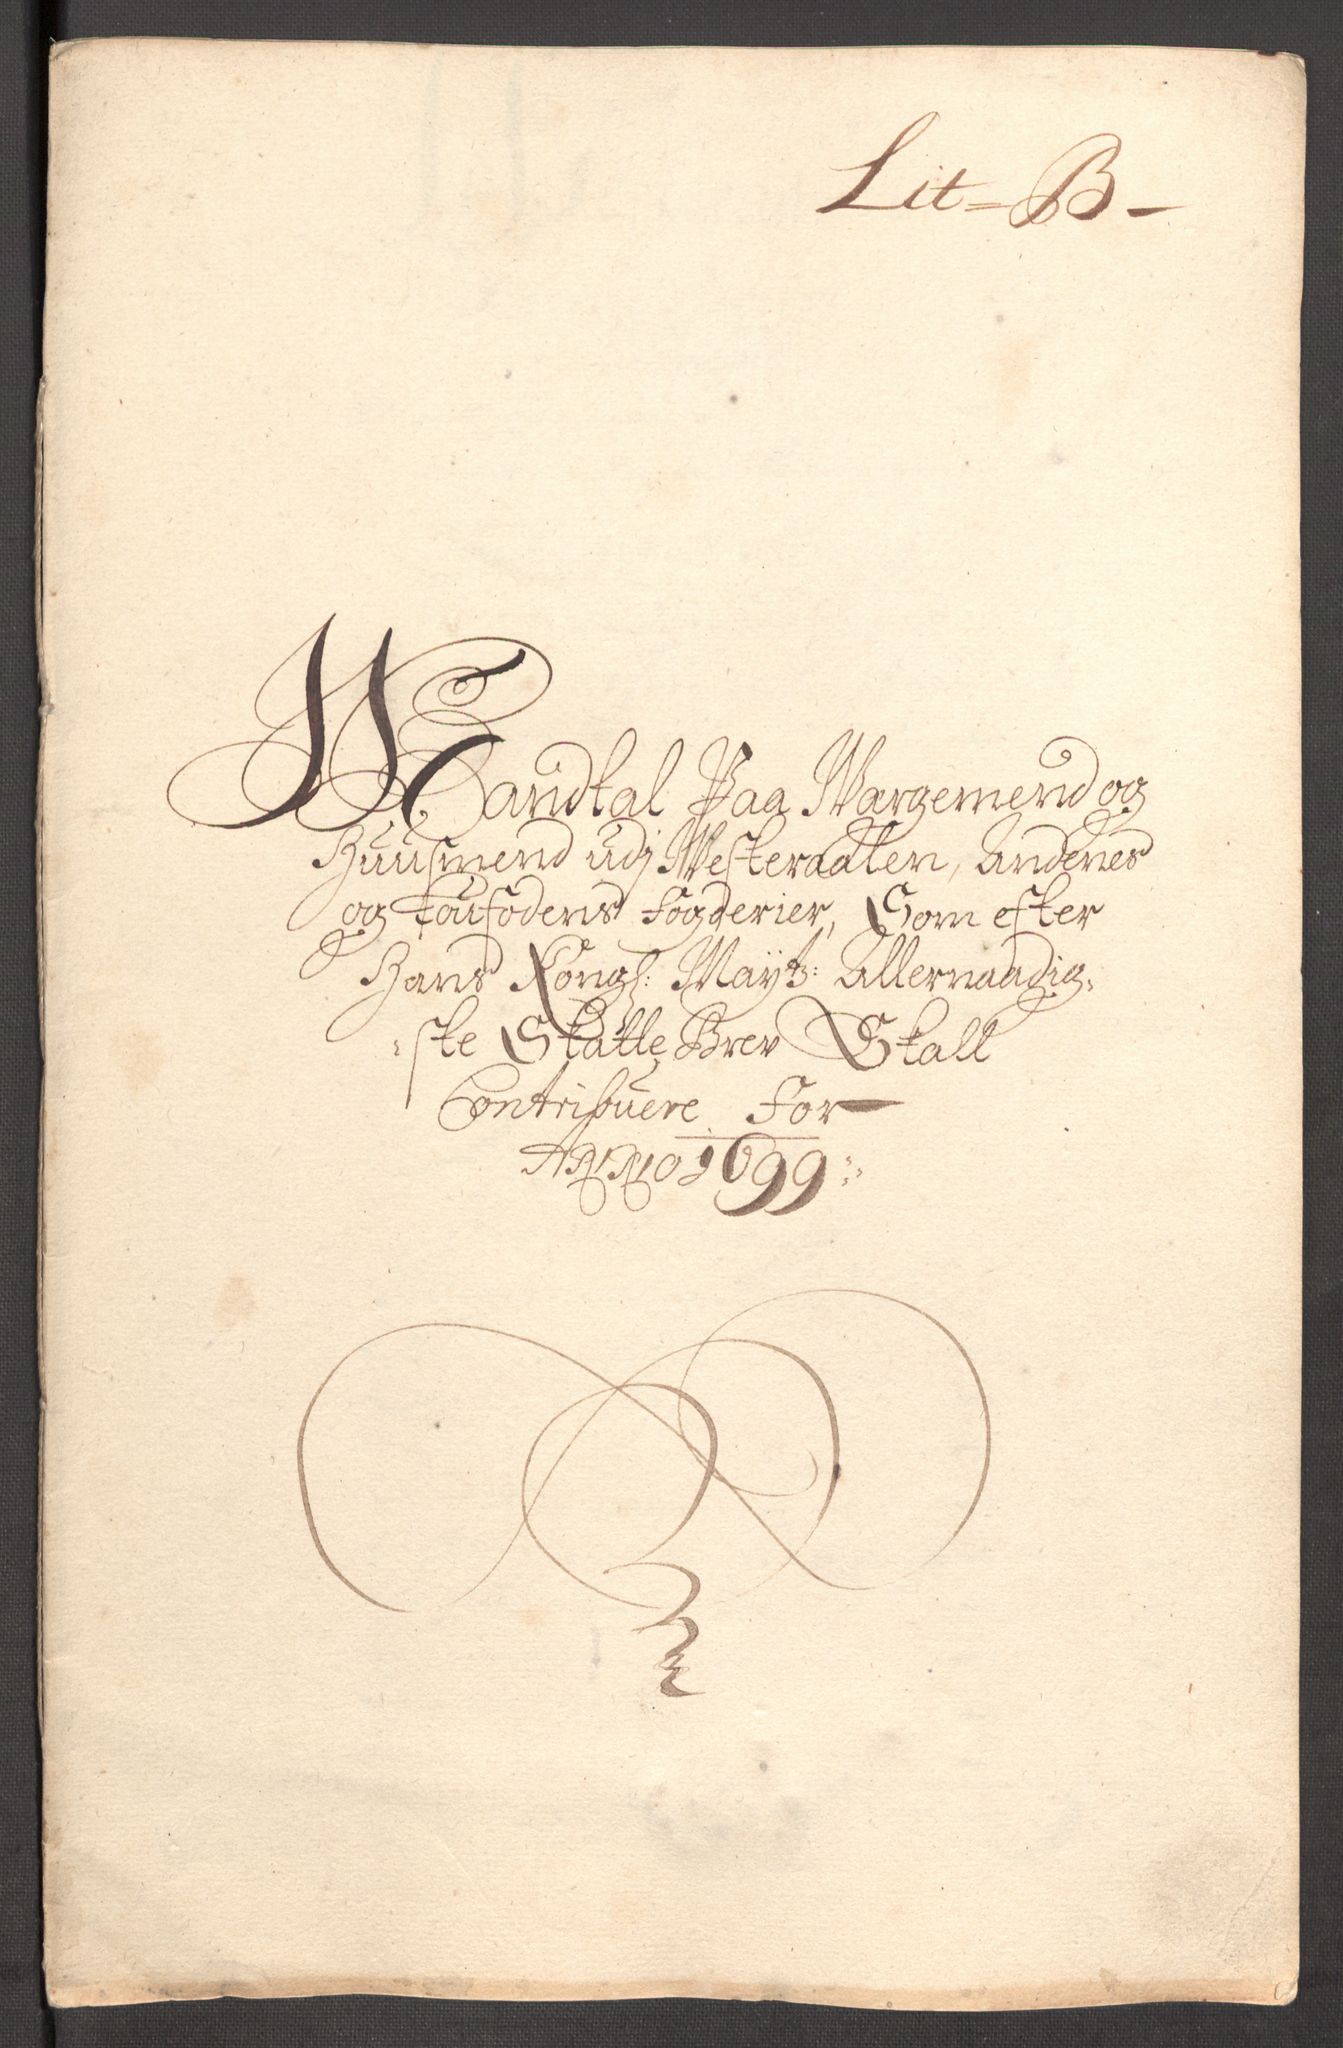 Lit = B -
Mandtal Paa Wargemend og
Huusmend udj Westeraalen, Andenes
og Loufodens Fogderier, Som efter
Hans Kongl: Mayt: Allernaadig=
=ste Skatte Brev Skall
Contribuere For
ANNO 1699